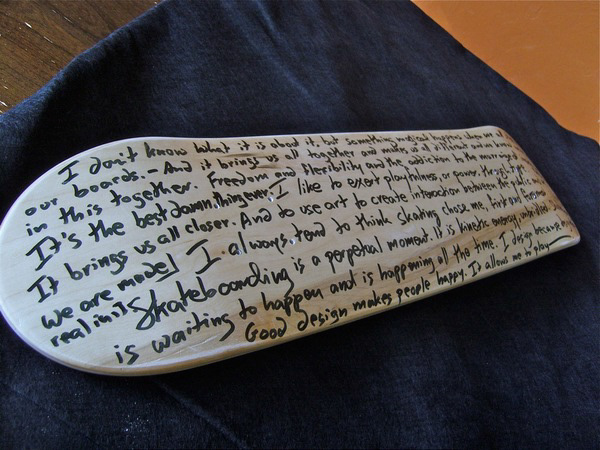 I don't know what it is about it, but something magical happens when we
our boards. - And it brings us all together and makes us all different and we
in this together. Freedom and flexibility and the addiction to the
It's the best damn thing ever. I like to exert playfulness, or power, through
It brings us all closer. And to use art to create interaction between the public
we are made! I always tend to think skating chose me, first and
real in it Skateboarding is a perpetual moment. It is kinetic energy, unbridled
is waiting to happen and is happening all the time. I design because
Good design makes people happy. It allows me to play